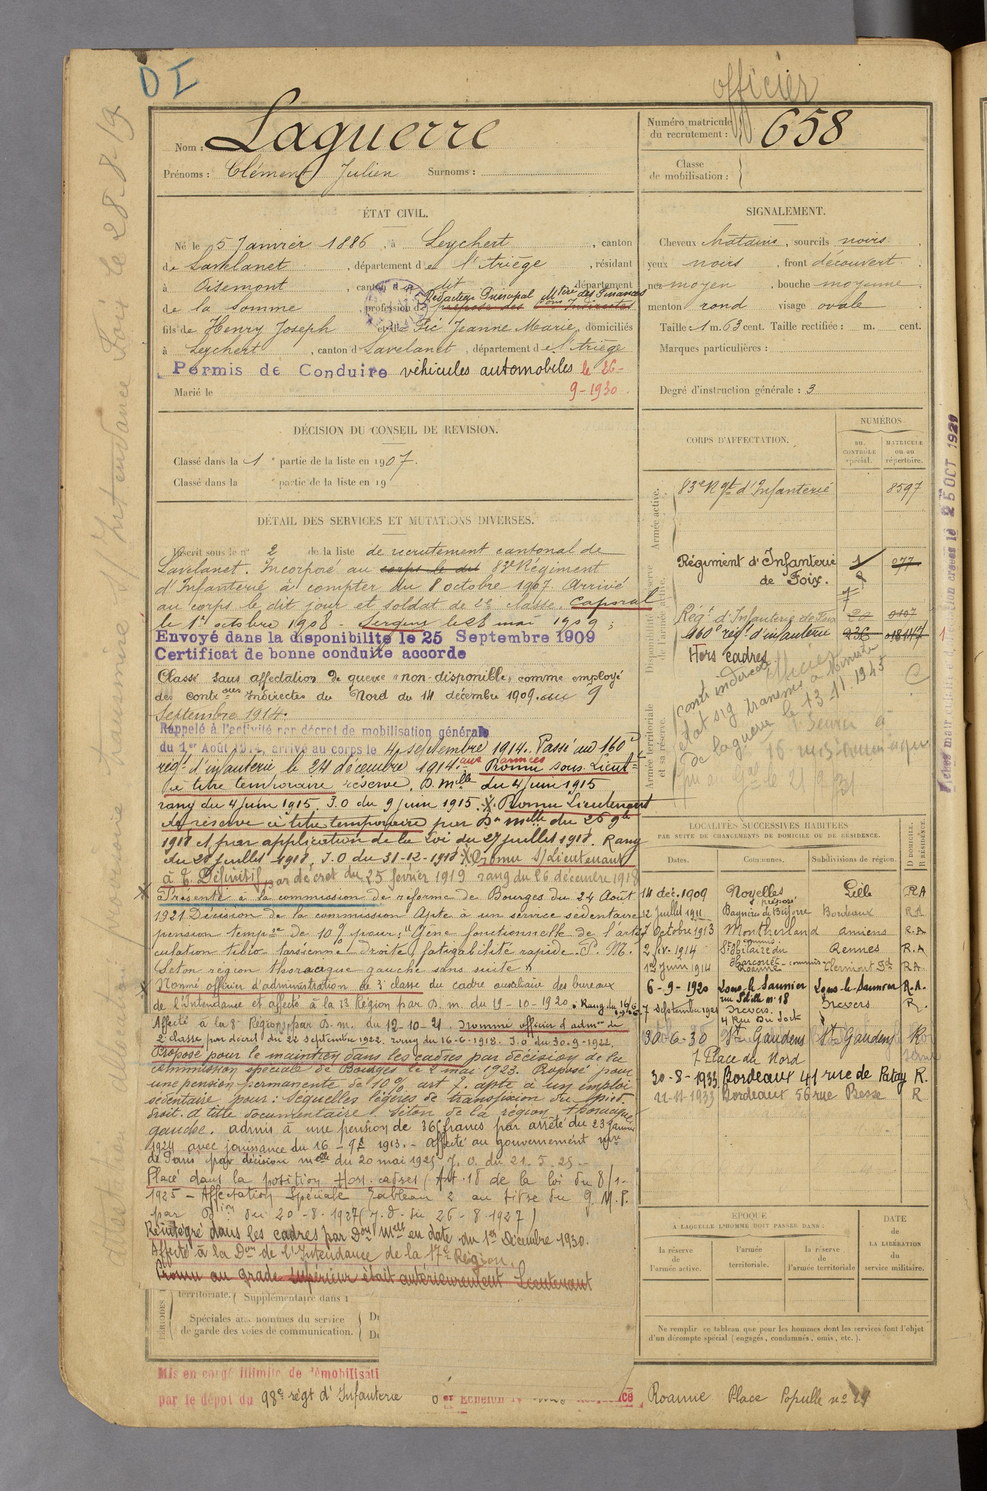 D I
officier
Nom : Laguerre
Prénoms : Clément Julien Surnoms :
Numéro matricule du recrutement : 658
Classe de mobilisation :
ÉTAT CIVIL.
Né le 5 Janvier 1886, à Leychert, canton
de Lavelanet, département de l'Ariège, résidant
à Oisemont, canton du dit, département
Rédacteur Principal Mtère des Finances
de la Somme, profession de
fils de Henry Joseph et de Pic Jeanne Marie, domiciliés
à Leychert, canton d Lavelanet, département de l'Ariège
Permis de Conduire véhicules automobiles le 26-
9-1930
Marié le
SIGNALEMENT.
Cheveux châtains, sourcils noirs
yeux noirs, front découvert
nez moyen, bouche moyenne
menton rond visage ovale
Taille 1 m. 63 cent. Taille rectifiée : m. cent.
Marques particulières :
Degré d'instruction générale : 3
DÉCISION DU CONSEIL DE REVISION.
Classé dans la 1e partie de la liste en 1907.
Classé dans la e partie de la liste en 19
CORPS D'AFFECTATION.
NUMÉROS
au CONTRÔLE spécial.
MATRICULE ou au répertoire.
Armée active.
83e Rgt d'Infanterie 8597
Régiment d'Infanterie
de Foix.
Régt d'Infanterie de Foix
160e régt d'infanterie
Hors cadres
DÉTAIL DES SERVICES ET MUTATIONS DIVERSES.
Inscrit sous le n° 2 de la liste de recrutement cantonal de
Lavelanet. Incorporé au corps le dit 83e Régiment
d'Infanterie à compter du 8 octobre 1907. Arrivé
au corps le dit jour et soldat de 2e classe. Caporal
le 1er octobre 1908. Sergent le 28 mai 1909;
Envoyé dans la disponibilité le 25 Septembre 1909
Certificat de bonne conduite accordé
Classé sans affectation de guerre "non-disponible" comme employé
des controns indirectes du Nord du 14 décembre 1909 au 9
Septembre 1914.
Rappelé à l'activité par décret de mobilisation générale
du 1er Août 1914, arrivé au corps le 4 septembre 1914. Passé au 160e
régt d'infanterie le 24 décembre 1914. aux armées Promu sous-Lieut
de à titre temporaire réserve, D. mlle du 4 juin 1915
rang du 4 juin 1915. J.O du 9 juin 1915. Promu Lieutenant
de réserve à titre temporaire par Don mlle du 25 9bre
1918 et par application de la loi du 27 juillet 1918. Rang
du 28 juillet 1918, J.O du 31-12-1918. Promu S/Lieutenant
à T. Définitif par décret du 25 février 1919 rang du 26 décembre 1918
Présenté à la commission de réforme de Bourges du 24 Août
1921 Décision de la commission Apte à un service sédentaire
pension tempre de 10 % pour: "Gêne fonctionnelle de l'arti
culation tibio tarsienne droite, fatigabilité rapide. P. M.
Séton région thoracique gauche sans suite"
Nommé officier d'administration de 3e classe du cadre auxiliaire des bureaux
de l'Intendance et affecté à la 13e Région par D. m. du 19-10-1920. Rang du 16/6
Affecté à la 8e Région par D. m. du 12-10-21. Nommé officier d'admon de
2e classe par décret du 22 septembre 1922. rang du 16-6-1918. J.O du 30-9-1922.
Proposé pour le maintien dans les cadres par décision de la
commission spéciale de Bourges le 2 mai 1923. Proposé pour
une pension permanente de 10 % art 7. apte à un emploi
sédentaire pour: séquelles légères de transfixion du pied
droit. à titre documentaire Séton de la région thoracique
gauche. admis à une pension de 36 francs par arrêté du 23 janvier
1924 avec jouissance du 16 - Affecté au gouvernement mre
de Paris par décision mlle du 20 mai 1925 J.O. du 21-5-25
Placé dans la position Hors cadres (Art. 18 de la loi du 8/1-
1925 - Affectation Spéciale Tableau 2 au titre du G.M.P.
par Don du 20-8-1927 (J.O. du 26-8-1927)
Réintégré dans les cadres par Don mlle en date du 1er Décembre 1930.
Affecté à la Don de l'Intendance de la 17e Région.
Promu au grade supérieur était antérieurement Lieutenant
territoriale. ( Supplémentaire dans :
Spéciales aux hommes du service
de garde des voies de communication.
Mis en congé illimité de démobilisati
par le dépôt du 98e régt d'Infanterie
LOCALITÉS SUCCESSIVES HABITÉES
PAR SUITE DE CHANGEMENTS DE DOMICILE OU DE RÉSIDENCE.
Dates. Communes. Subdivisions de région. D DOMICILE. R RÉSIDENCE.
14 déc. 1909 Noyelles Lille R A
12 juillet 1911 Bagnères de Bigorre Bordeaux R A
7 Octobre 1913 Montherland amiens R.A
2 fév. 1914 St Hilaire du Harcouët Rennes R.A
12 juin 1914 Roanne Clermont Fd R A
6-9-1920 Lons-le-Saunier Lons-le-Saunier R.A.
rue Sébile n° 18
7 septembre 1921 Trèves. Trèves R.
30-6-30 St Gaudens St Gaudens R
7 Place du Nord
30-8-1933 Bordeaux 41 rue de Patay R.
22-11-1933 Bordeaux 56 rue Besse R
EPOQUE
A LAQUELLE L'HOMME DOIT PASSER DANS :
la réserve de l'armée active.
l'armée territoriale.
la réserve de l'armée territoriale
DATE DE LA LIBÉRATION du service militaire.
Ne remplir ce tableau que pour les hommes dont les services font l'objet
d'un décompte spécial (engagés, condamnés, omis, etc.).
Roanne Place Populle n° 29